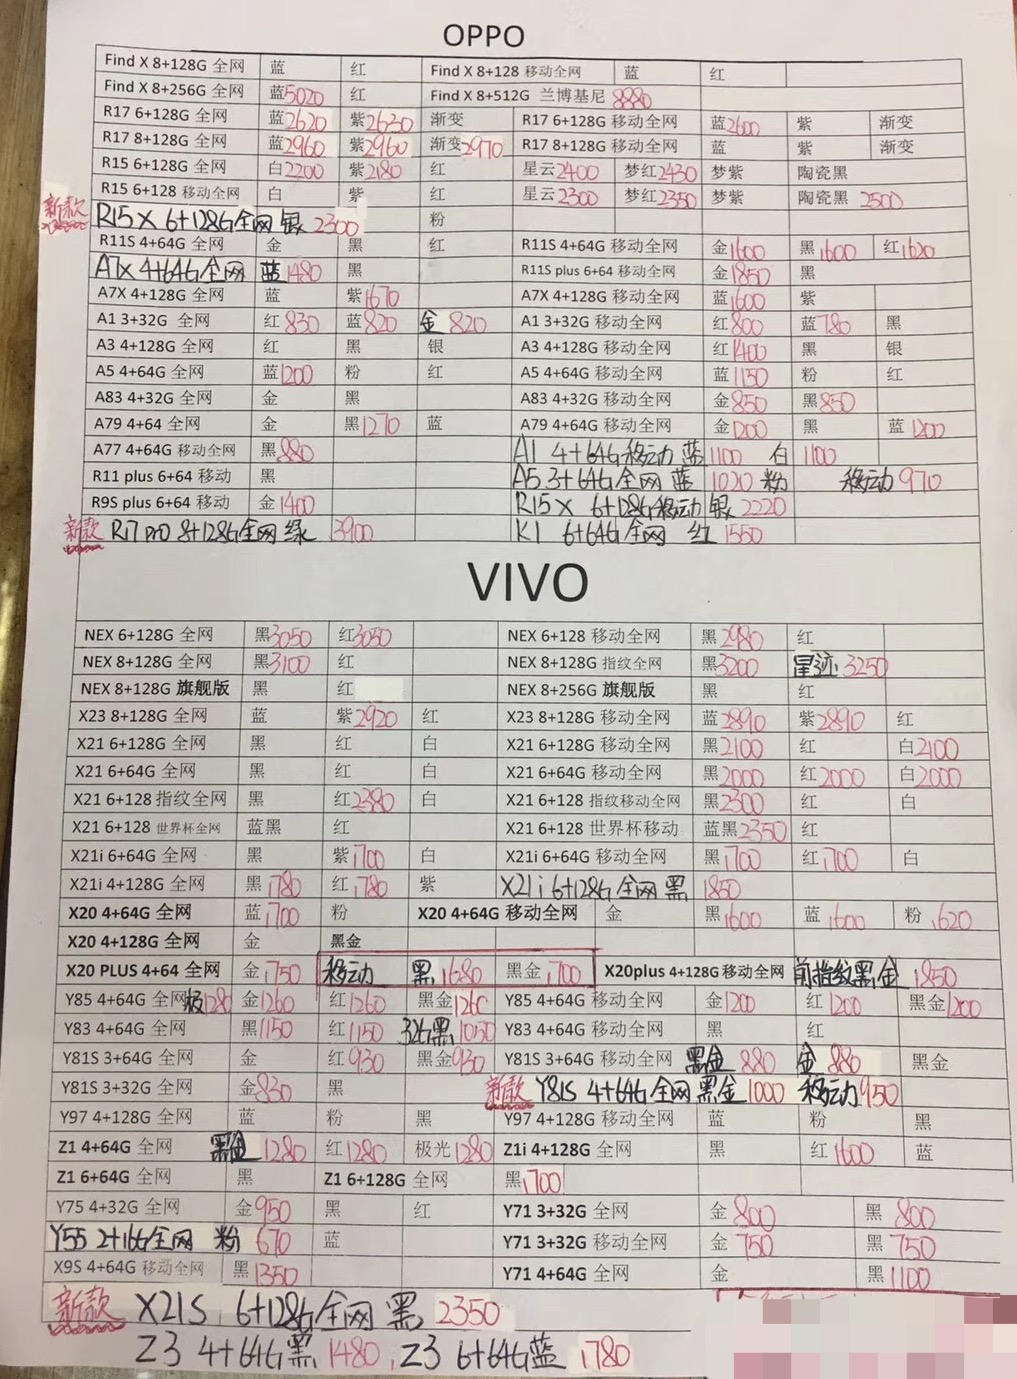 OPPO
Find X 8+128G 全网 蓝 红 Find X 8+128 移动全网 蓝 红
Find X 8+256G 全网 蓝5020 红 Find X 8+512G 兰博基尼 8880
R17 6+128G 全网 蓝2620 紫2630 渐变 R17 6+128G 移动全网 蓝2600 紫 渐变
R17 8+128G 全网 蓝2960 紫2960 渐变2970 R17 8+128G 移动全网 蓝 紫 渐变
R15 6+128G 全网 白2200 紫2180 红 星云2400 梦红2430 梦紫 陶瓷黑
R15 6+128 移动全网 白 紫 红 星云2300 梦红2350 梦紫 陶瓷黑 2500
新款 R15X 6+128G全网 银 2300 粉
R11S 4+64G 全网 金 黑 红 R11S 4+64G 移动全网 金1600 黑1600 红1620
A7X 4+64G全网 蓝1480 黑 R11S plus 6+64 移动全网 金1850 黑
A7X 4+128G 全网 蓝 紫1670 A7X 4+128G 移动全网 蓝1600 紫
A1 3+32G 全网 红830 蓝820 金 820 A1 3+32G 移动全网 红800 蓝780 黑
A3 4+128G 全网 红 黑 银 A3 4+128G 移动全网 红1400 黑 银
A5 4+64G 全网 蓝1200 粉 红 A5 4+64G 移动全网 蓝1150 粉 红
A83 4+32G 全网 金 黑 A83 4+32G 移动全网 金850 黑850
A79 4+64 全网 金 黑1270 蓝 A79 4+64G 移动全网 金1200 黑 蓝1200
A77 4+64G 移动全网 黑880 A1 4+64G移动 蓝1100 白1100
R11 plus 6+64 移动 黑 A5 3+64G全网 蓝 1020 粉 移动970
R9S plus 6+64 移动 金1400 R15X 6+128G移动 银2220
新款 R17 pro 8+128G全网 绿 3900 K1 6+64G全网 红 1550
VIVO
NEX 6+128G 全网 黑3050 红3050 NEX 6+128 移动全网 黑2980 红
NEX 8+128G 全网 黑3100 红 NEX 8+128G 指纹全网 黑3200 星迹3250
NEX 8+128G 旗舰版 黑 红 NEX 8+256G 旗舰版 黑 红
X23 8+128G 全网 蓝 紫2920 红 X23 8+128G 移动全网 蓝2890 紫2890 红
X21 6+128G 全网 黑 红 白 X21 6+128G 移动全网 黑2100 红 白2100
X21 6+64G 全网 黑 红 白 X21 6+64G 移动全网 黑2000 红2000 白2000
X21 6+128 指纹全网 黑 红2380 白 X21 6+128 指纹移动全网 黑2300 红 白
X21 6+128 世界杯全网 蓝黑 红 X21 6+128 世界杯移动 蓝黑2350 红
X21i 6+64G 全网 黑 紫1700 白 X21i 6+64G 移动全网 黑1700 红1700 白
X21i 4+128G 全网 黑1780 红1780 紫 X21i 6+128G全网 黑 1850
X20 4+64G 全网 蓝1700 粉 X20 4+64G 移动全网 金 黑1600 蓝1600 粉1620
X20 4+128G 全网 金 黑金
X20 PLUS 4+64 全网 金1750 移动 黑1680 黑金1700 X20plus 4+128G 移动全网 前指纹黑金 1850
Y85 4+64G 全网 极1280 金1260 红1260 黑金1260 Y85 4+64G 移动全网 金1200 红1200 黑金1200
Y83 4+64G 全网 黑1150 红1150 32G黑1050 Y83 4+64G 移动全网 黑 红
Y81S 3+64G 全网 金 红930 黑金930 Y81S 3+64G 移动全网 黑金880 金880 黑金
Y81S 3+32G 全网 金830 黑 新款 Y81S 4+64G全网 黑金1000 移动950
Y97 4+128G 全网 蓝 粉 黑 Y97 4+128G 移动全网 蓝 粉 黑
Z1 4+64G 全网 黑金1280 红1280 极光1280 Z1i 4+128G 全网 黑 红1600 蓝
Z1 6+64G 全网 黑 Z1 6+128G 全网 黑1700
Y75 4+32G 全网 金950 黑 红 Y71 3+32G 全网 金800 黑 800
Y55 2+16G全网 粉 670 蓝 Y71 3+32G 移动全网 金750 黑 750
X9S 4+64G 移动全网 黑1350 Y71 4+64G 全网 金 黑1100
新款 X21S 6+128G全网 黑 2350
Z3 4+64G黑1480 Z3 6+64G蓝1780